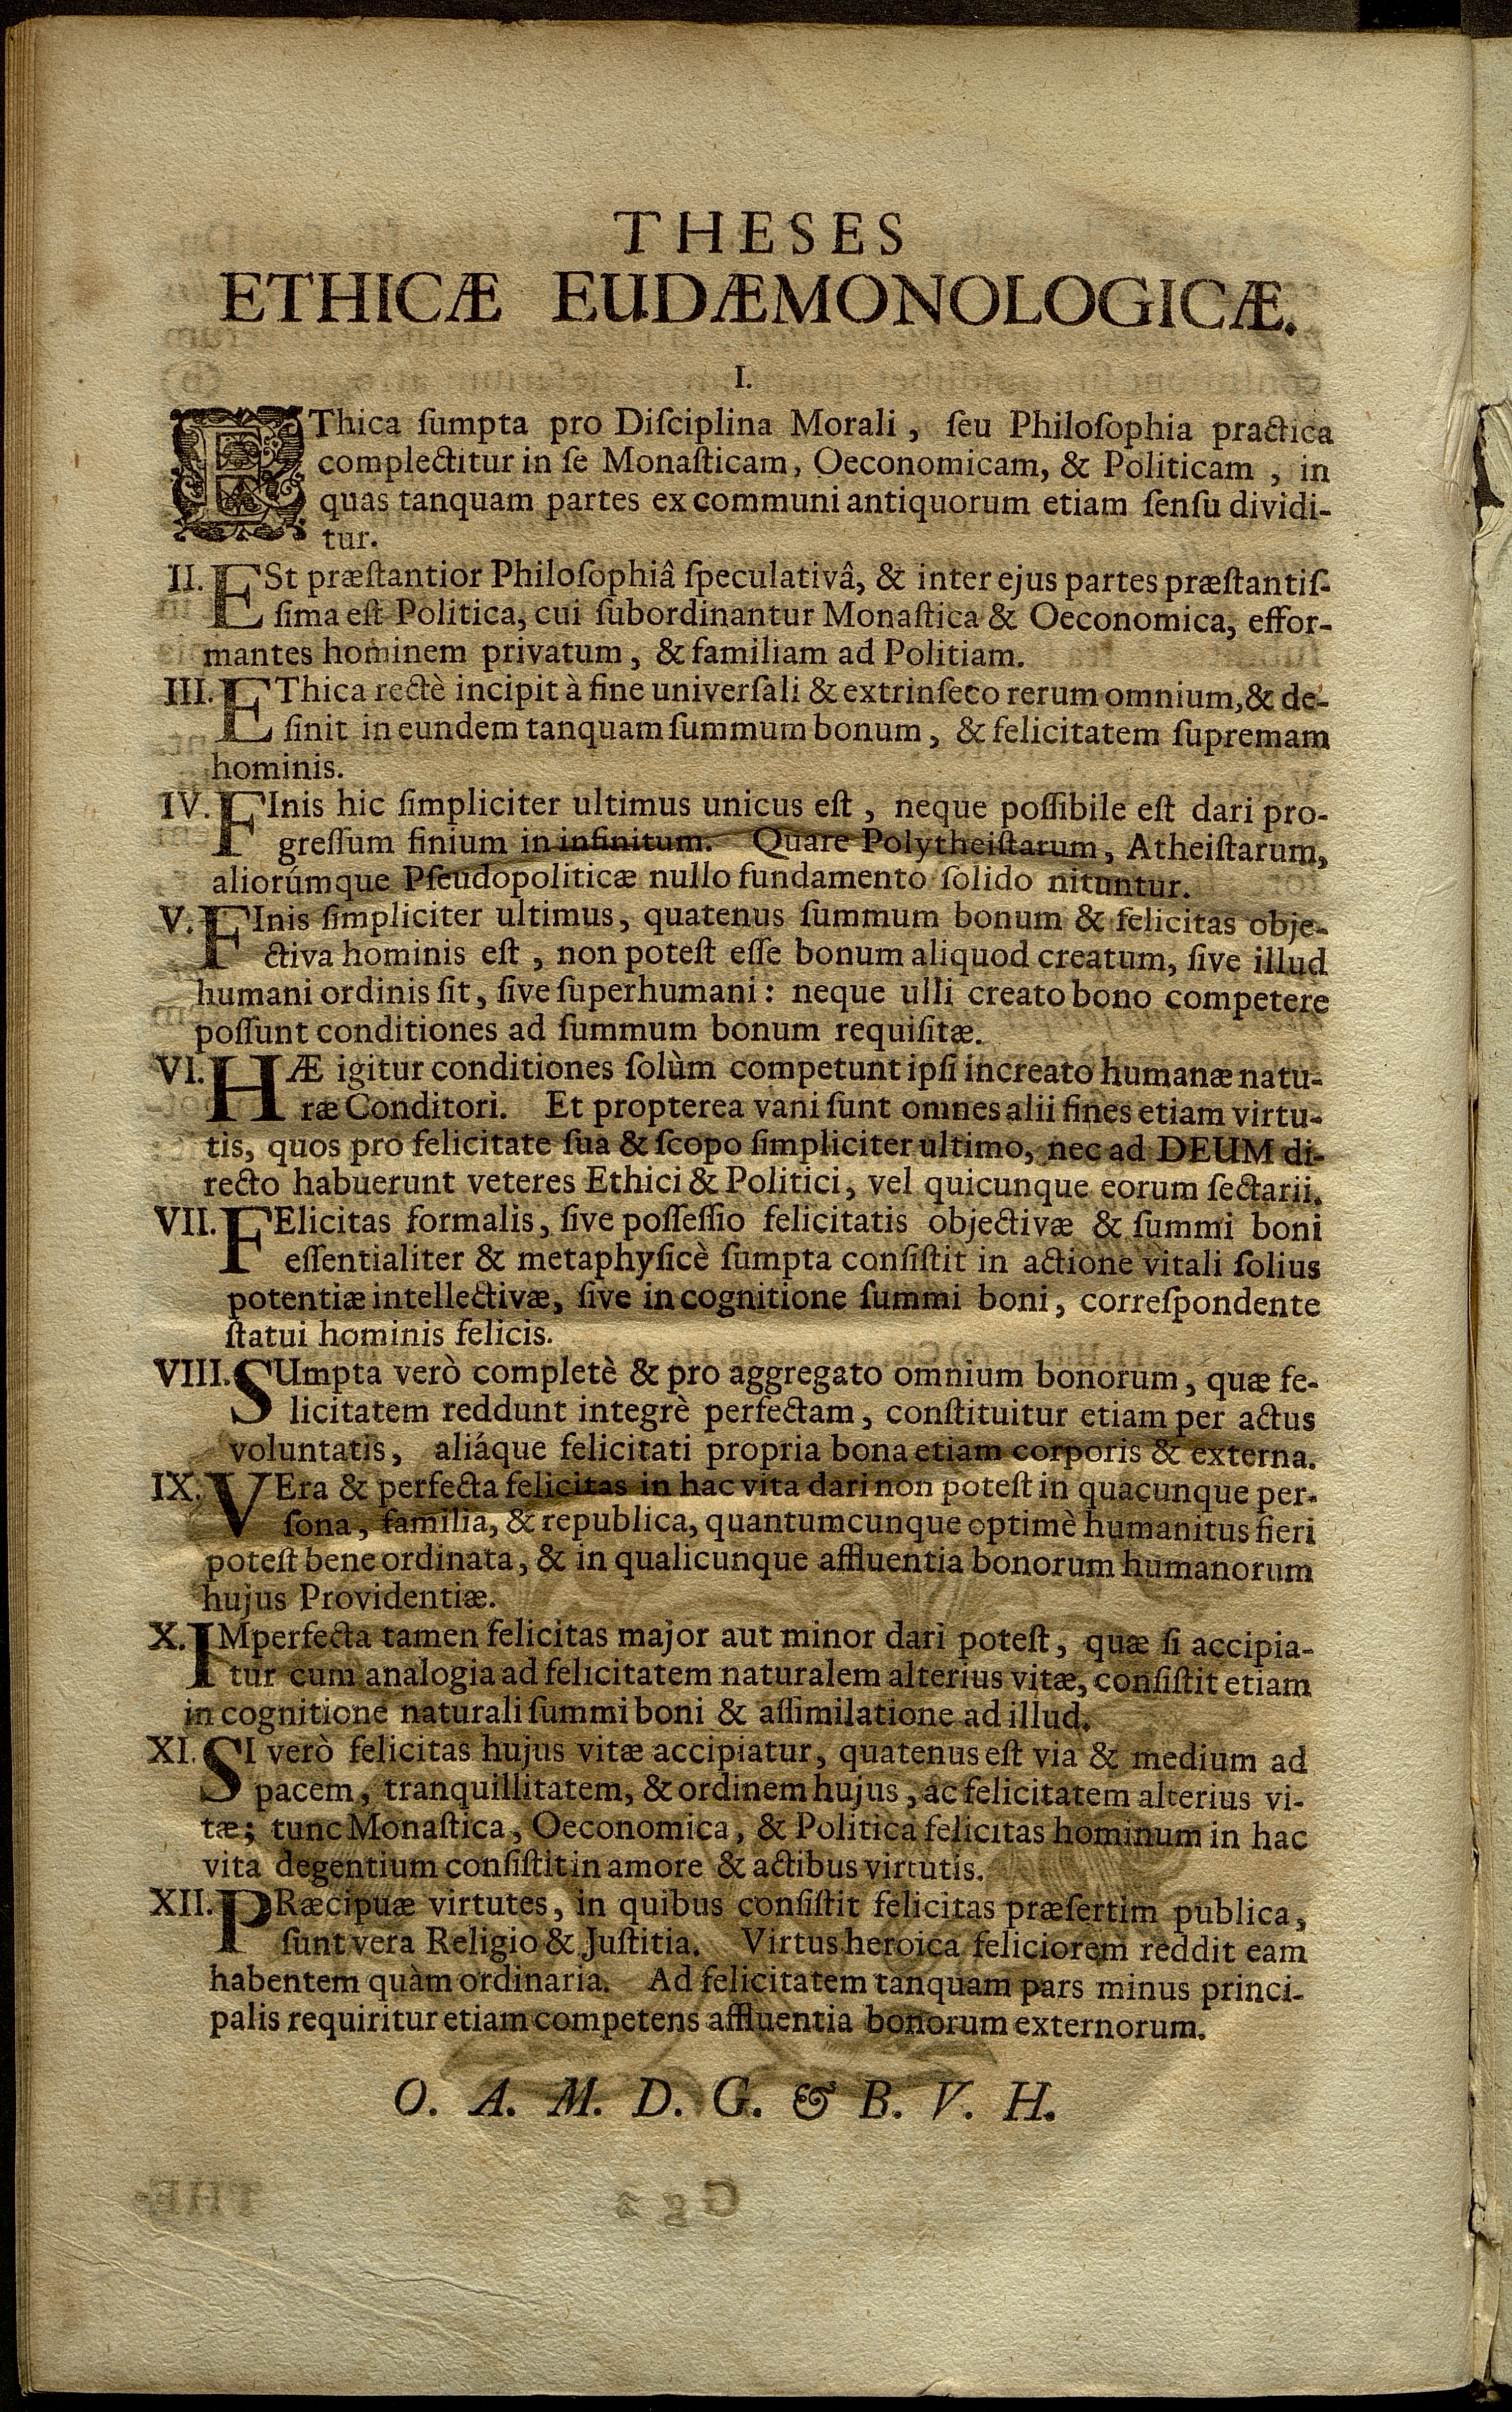 THESES
ETHICÆ EUDÆMONOLOGICÆ.
I.
EThica ſumpta pro Diſciplina Morali, ſeu Philoſophia practica
complectitur in ſe Monaſticam, Oeconomicam, & Politicam, in
quas tanquam partes ex communi antiquorum etiam ſenſu dividi-
tur.
II. ESt præſtantior Philoſophiâ ſpeculativâ, & inter ejus partes præſtantiſ-
ſima eſt Politica, cui ſubordinantur Monaſtica & Oeconomica, effor-
mantes hominem privatum, & familiam ad Politiam.
III. EThica rectè incipit à fine univerſali & extrinſeco rerum omnium, & de-
ſinit in eundem tanquam ſummum bonum, & felicitatem ſupremam
hominis.
IV. FInis hic ſimpliciter ultimus unicus eſt, neque poſſibile eſt dari pro-
greſſum finium in infinitum. Quare Polytheiſtarum, Atheiſtarum,
aliorúmque Pſeudopoliticæ nullo fundamento ſolido nituntur.
V. FInis ſimpliciter ultimus, quatenus ſummum bonum & felicitas obje-
ctiva hominis eſt, non poteſt eſſe bonum aliquod creatum, ſive illud
humani ordinis ſit, ſive ſuperhumani: neque ulli creato bono competere
poſſunt conditiones ad ſummum bonum requiſitæ.
VI. HÆ igitur conditiones ſolùm competunt ipſi increato humanæ natu-
ræ Conditori. Et propterea vani ſunt omnes alii fines etiam virtu-
tis, quos pro felicitate ſua & ſcopo ſimpliciter ultimo, nec ad DEUM di-
recto habuerunt veteres Ethici & Politici, vel quicunque eorum ſectarii.
VII. FElicitas formalis, ſive poſſeſſio felicitatis objectivæ & ſummi boni
eſſentialiter & metaphyſicè ſumpta conſiſtit in actione vitali ſolius
potentiæ intellectivæ, ſive in cognitione ſummi boni, correſpondente
ſtatui hominis felicis.
VIII. SUmpta verò completè & pro aggregato omnium bonorum, quæ fe-
licitatem reddunt integrè perfectam, conſtituitur etiam per actus
voluntatis, aliáque felicitati propria bona etiam corporis & externa.
IX. VEra & perfecta felicitas in hac vita dari non poteſt in quacunque per-
ſona, familia, & republica, quantumcunque optimè humanitus fieri
poteſt bene ordinata, & in qualicunque affluentia bonorum humanorum
hujus Providentiæ.
X. IMperfecta tamen felicitas major aut minor dari poteſt, quæ ſi accipia-
tur cum analogia ad felicitatem naturalem alterius vitæ, conſiſtit etiam
in cognitione naturali ſummi boni & aſſimilatione ad illud.
XI. SI verò felicitas hujus vitæ accipiatur, quatenus eſt via & medium ad
pacem, tranquillitatem, & ordinem hujus, ac felicitatem alterius vi-
tæ; tunc Monaſtica, Oeconomica, & Politica felicitas hominum in hac
vita degentium conſiſtit in amore & actibus virtutis.
XII. PRæcipuæ virtutes, in quibus conſiſtit felicitas præſertim publica,
ſunt vera Religio & Juſtitia. Virtus heroica feliciorem reddit eam
habentem quàm ordinaria. Ad felicitatem tanquam pars minus princi-
palis requiritur etiam competens affluentia bonorum externorum.
O. A. M. D. G. & B. V. H.